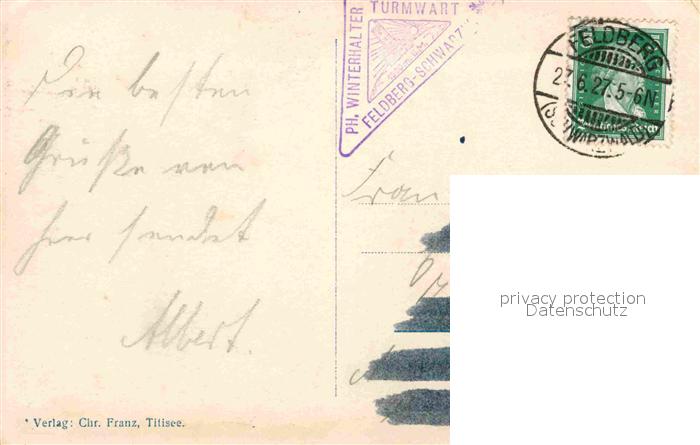 Die besten
Grüße von
hier sendet
Albert.
* Verlag: Chr. Franz, Titisee.
PH. WINTERHALTER
TURMWART
FELDBERG-SCHWARZW
FELDBERG
27.6.27.5-6N
(SCHWARZWALD)
Frau
privacy protection
Datenschutz